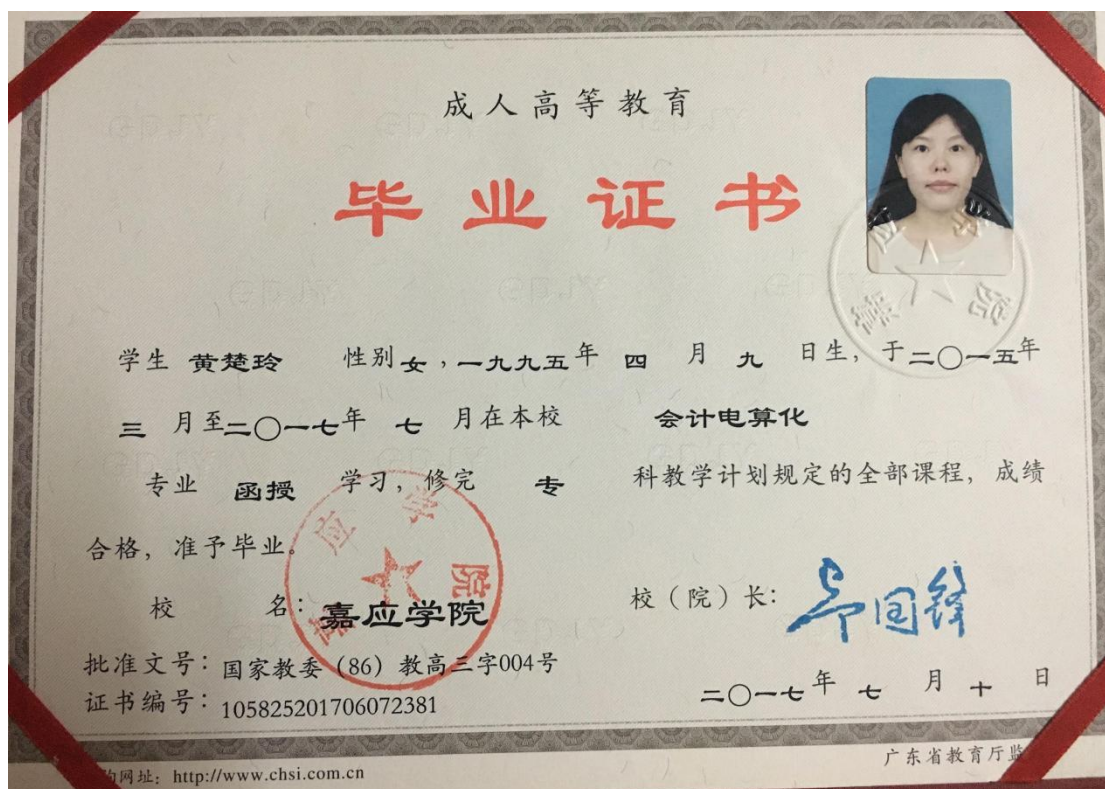 成人高等教育
毕业证书
学生 黄楚玲 性别女，一九九五年 四 月 九 日生，于二〇一五年
三 月至二〇一七年 七 月在本校 会计电算化
专业 函授 学习，修完 专 科教学计划规定的全部课程，成绩
合格，准予毕业。
校 名：嘉应学院 校（院）长：
批准文号：国家教委（86）教高三字004号
证书编号：105825201706072381
二〇一七年 七 月 十 日
网址：http://www.chsi.com.cn
广东省教育厅监
嘉应学院
嘉应学院